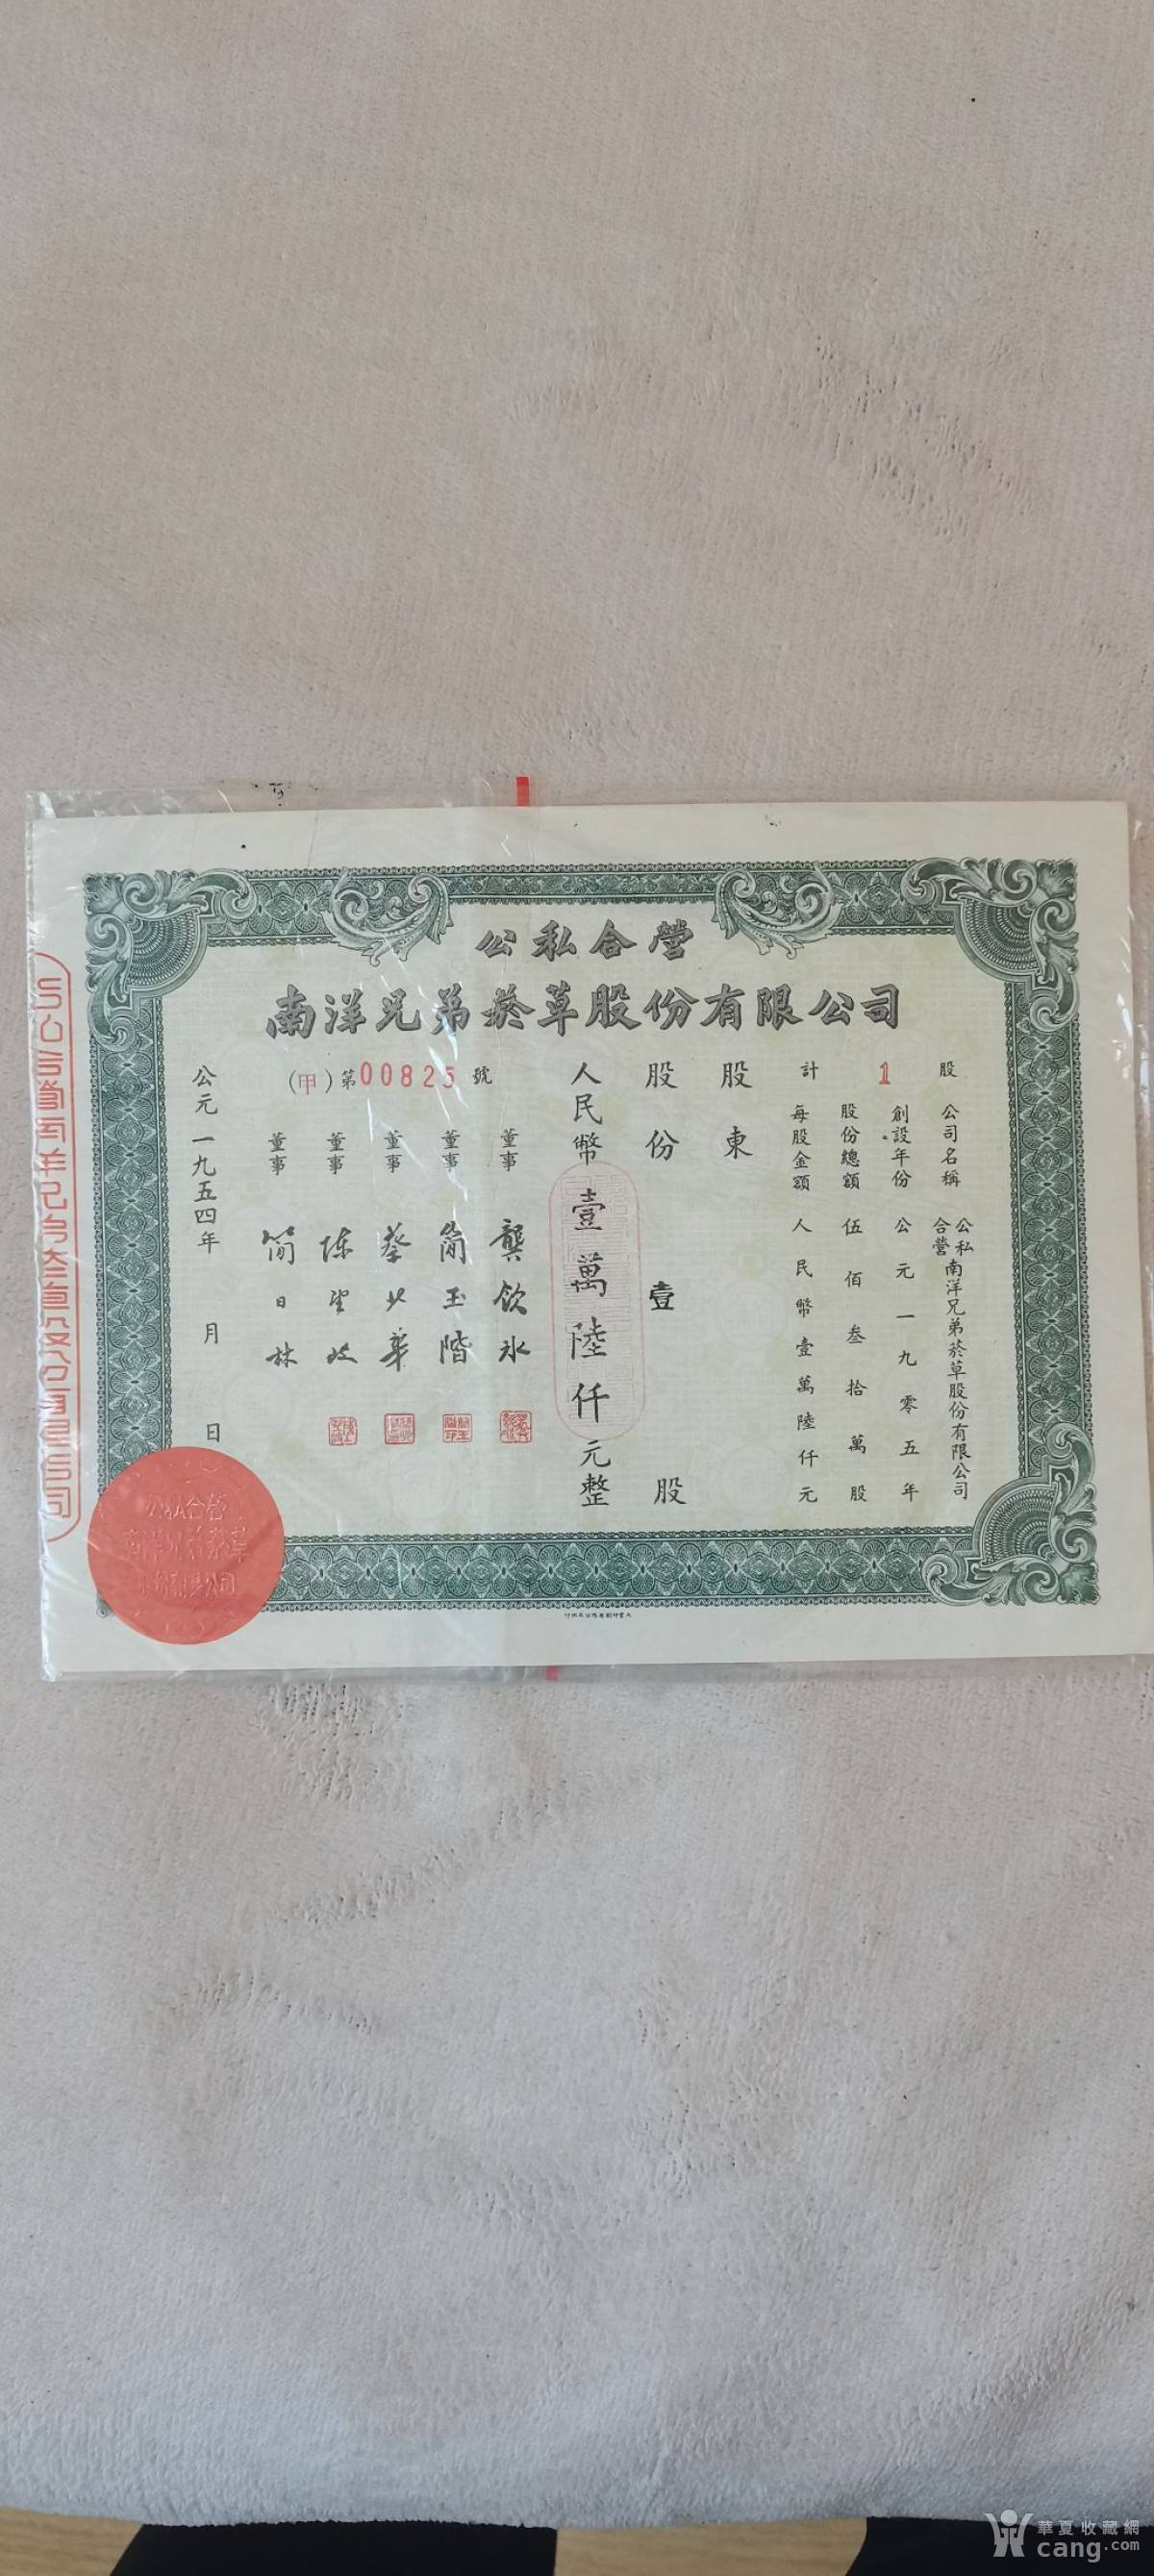 公私合營
南洋兄弟菸草股份有限公司
計 1 股
公司名稱 公私合營南洋兄弟菸草股份有限公司
創設年份 公元一九零五年
股份總額 伍佰叁拾萬股
每股金額 人民幣壹萬陸仟元
股東
股份 壹 股
人民幣壹萬陸仟元整
(甲)第00825號
董事 龔飲冰
董事 簡玉階
董事 蔡北華
董事
董事 簡日林
公元一九五四年 月 日
公私合營
南洋兄弟菸草
股份有限公司
華夏收藏網
cang.com